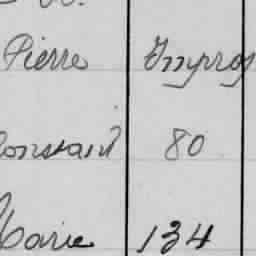 Pierre Improp
Constant 80
Marie 134